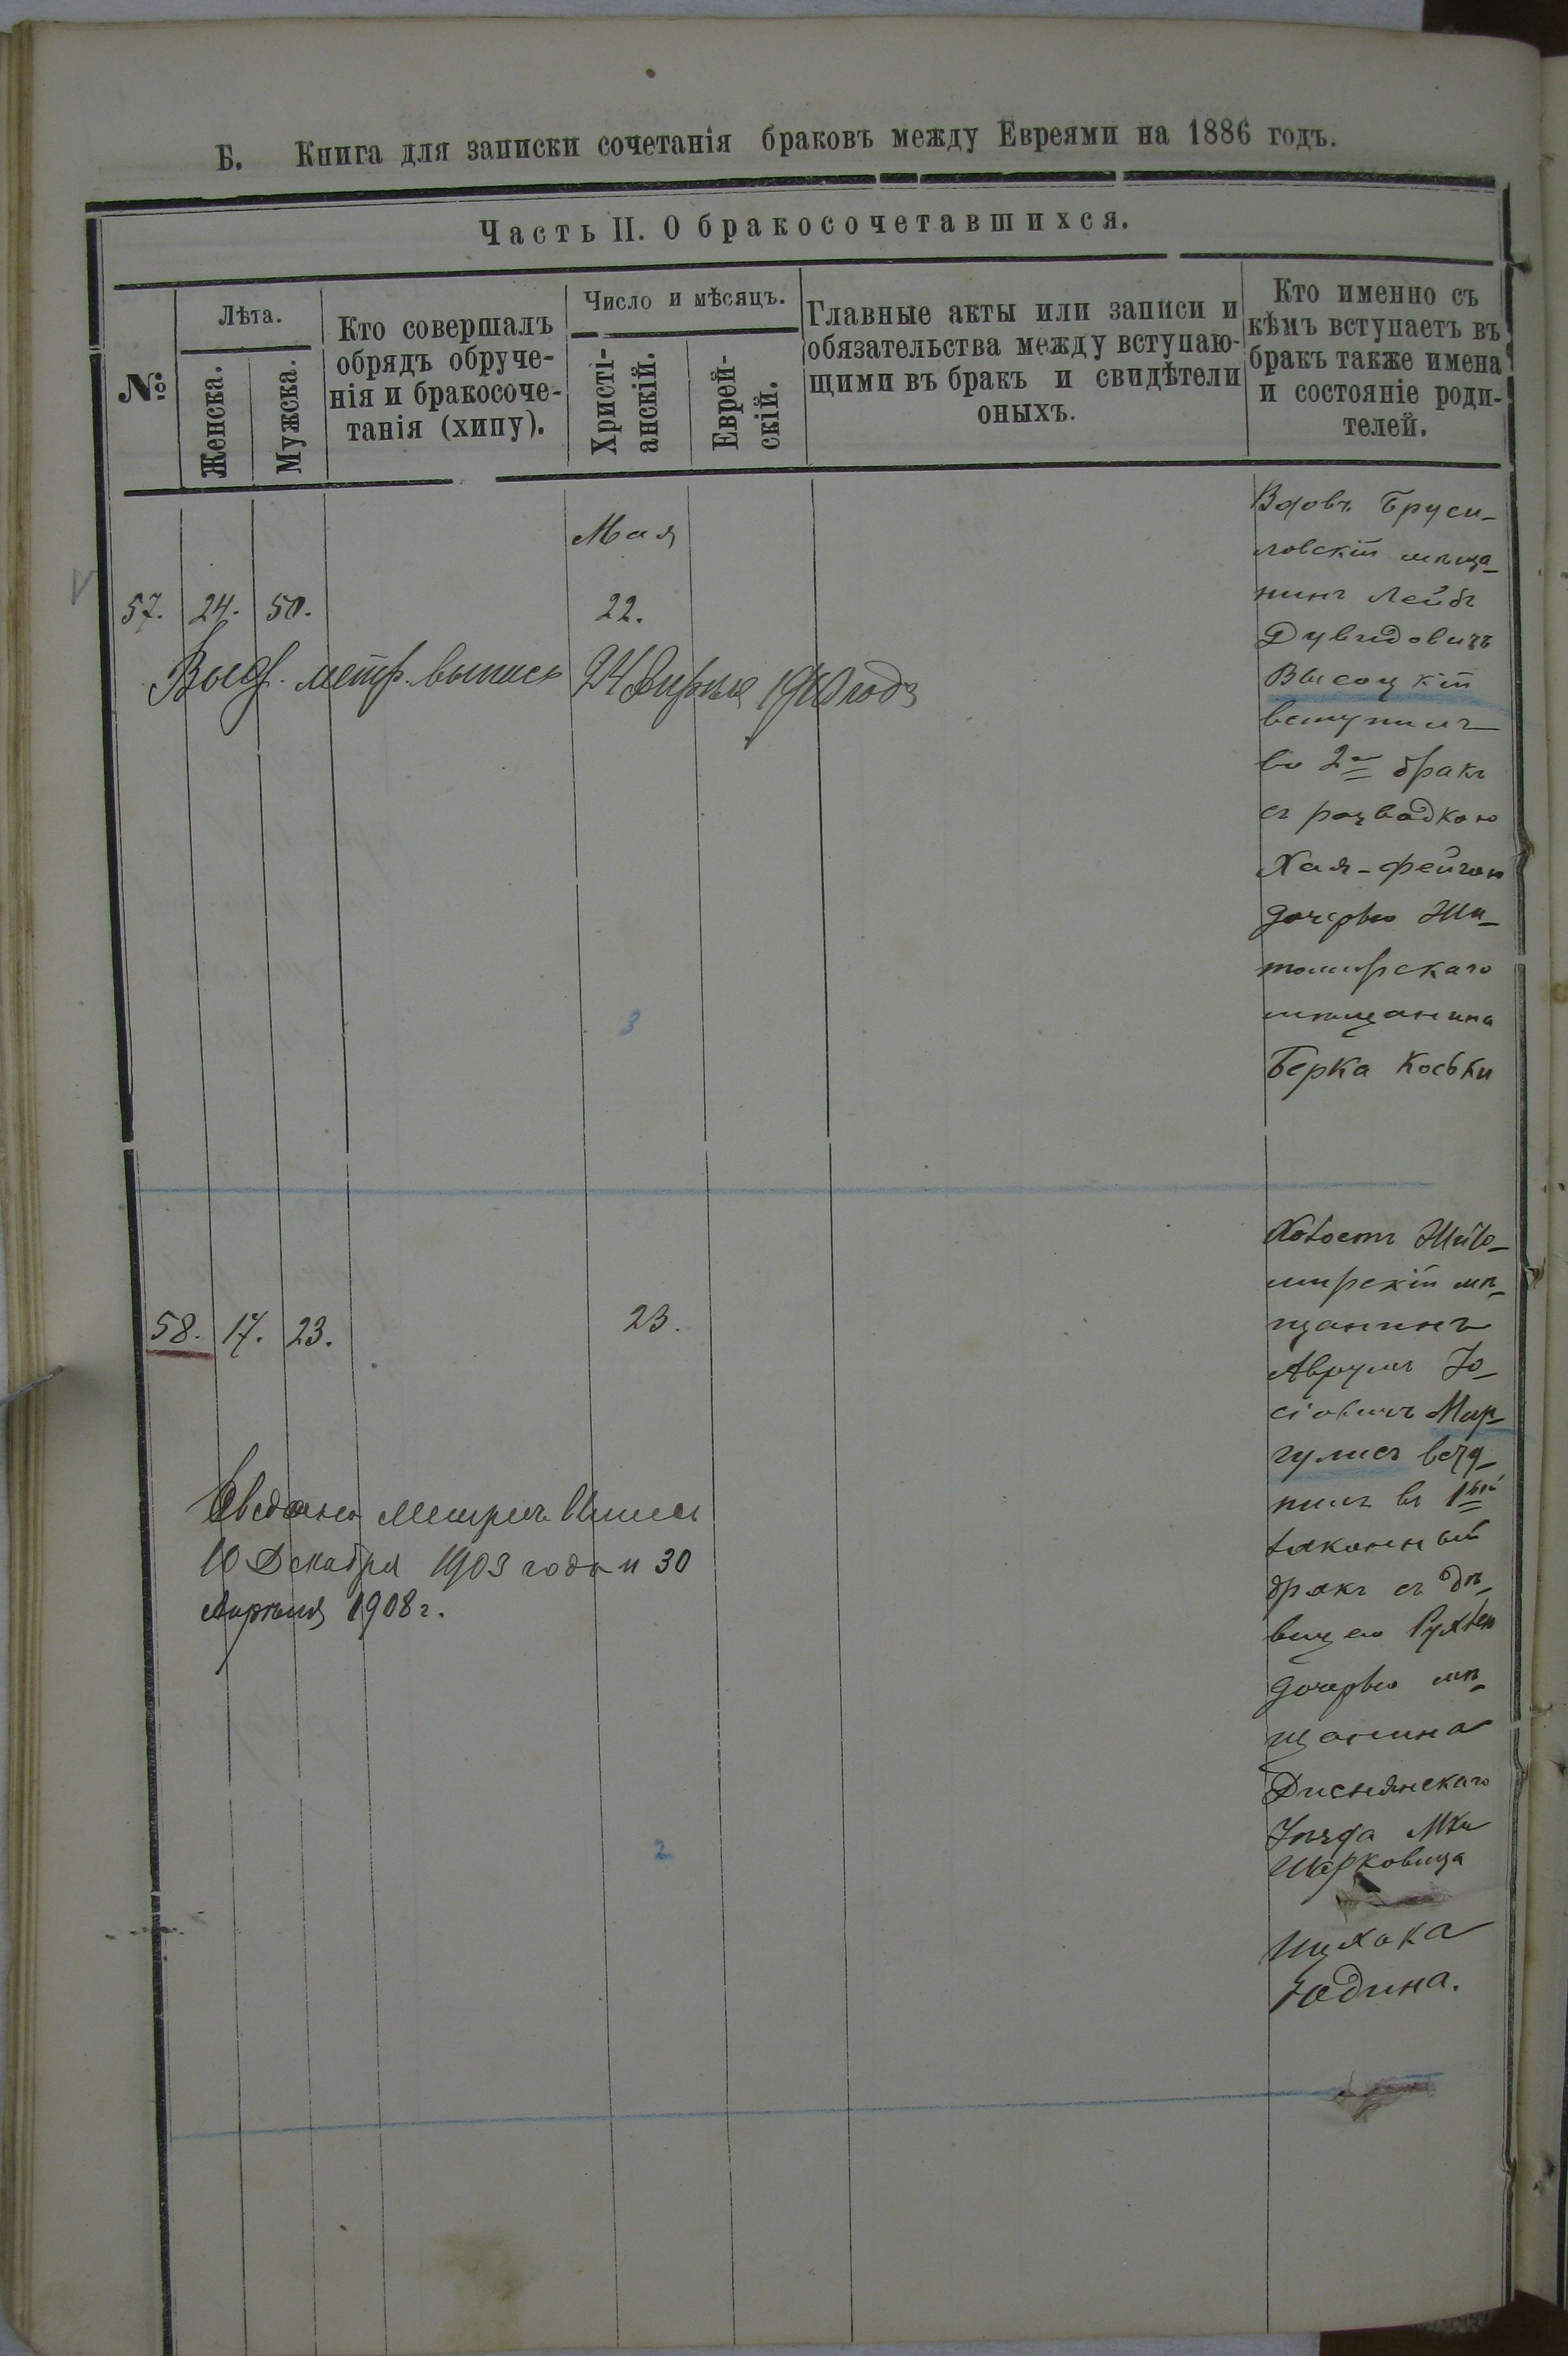 Б. Книга для записки сочетанія браковъ между Евреями на 1886 годъ.
Часть II. О бракосочетавшихся.
№
Лѣта.
Женска.
Мужска.
Кто совершалъ
обрядъ обруче-
нія и бракосоче-
танія (хипу).
Число и мѣсяцъ.
Христі-
анскій.
Еврей-
скій.
Главные акты или записи и
обязательства между вступаю-
щими въ бракъ и свидѣтели
оныхъ.
Кто именно съ
кѣмъ вступаетъ въ
бракъ также имена
и состояніе роди-
телей.
Мая
57. 24. 50. 22.
Выд. метр. выпись 24 Апреля 1910 года
Вдовъ Бруси-
ловскій мѣща-
нинъ Лейбъ
Дувидовичъ
Высоцкій
вступилъ
во 2й бракъ
съ розводкою
Хая-Фейгою
дочерью Жи-
томирскаго
мѣщанина
Берка Коськи
3
58. 17. 23. 23.
метрич
10 Декабря 1903 года и 30
Апрѣля 1908 г.
Холостъ Жито-
мирскій мѣ-
щанинъ
Аврумъ Іо-
сіовичъ Мар-
гулисъ всту-
пилъ въ 1ый
законный
бракъ съ дѣ-
вицею Рухлею
дочерью мѣ-
щанина
Дисненскаго
Уѣзда Мка
Шарковица
Ицхока
Юдина.
2